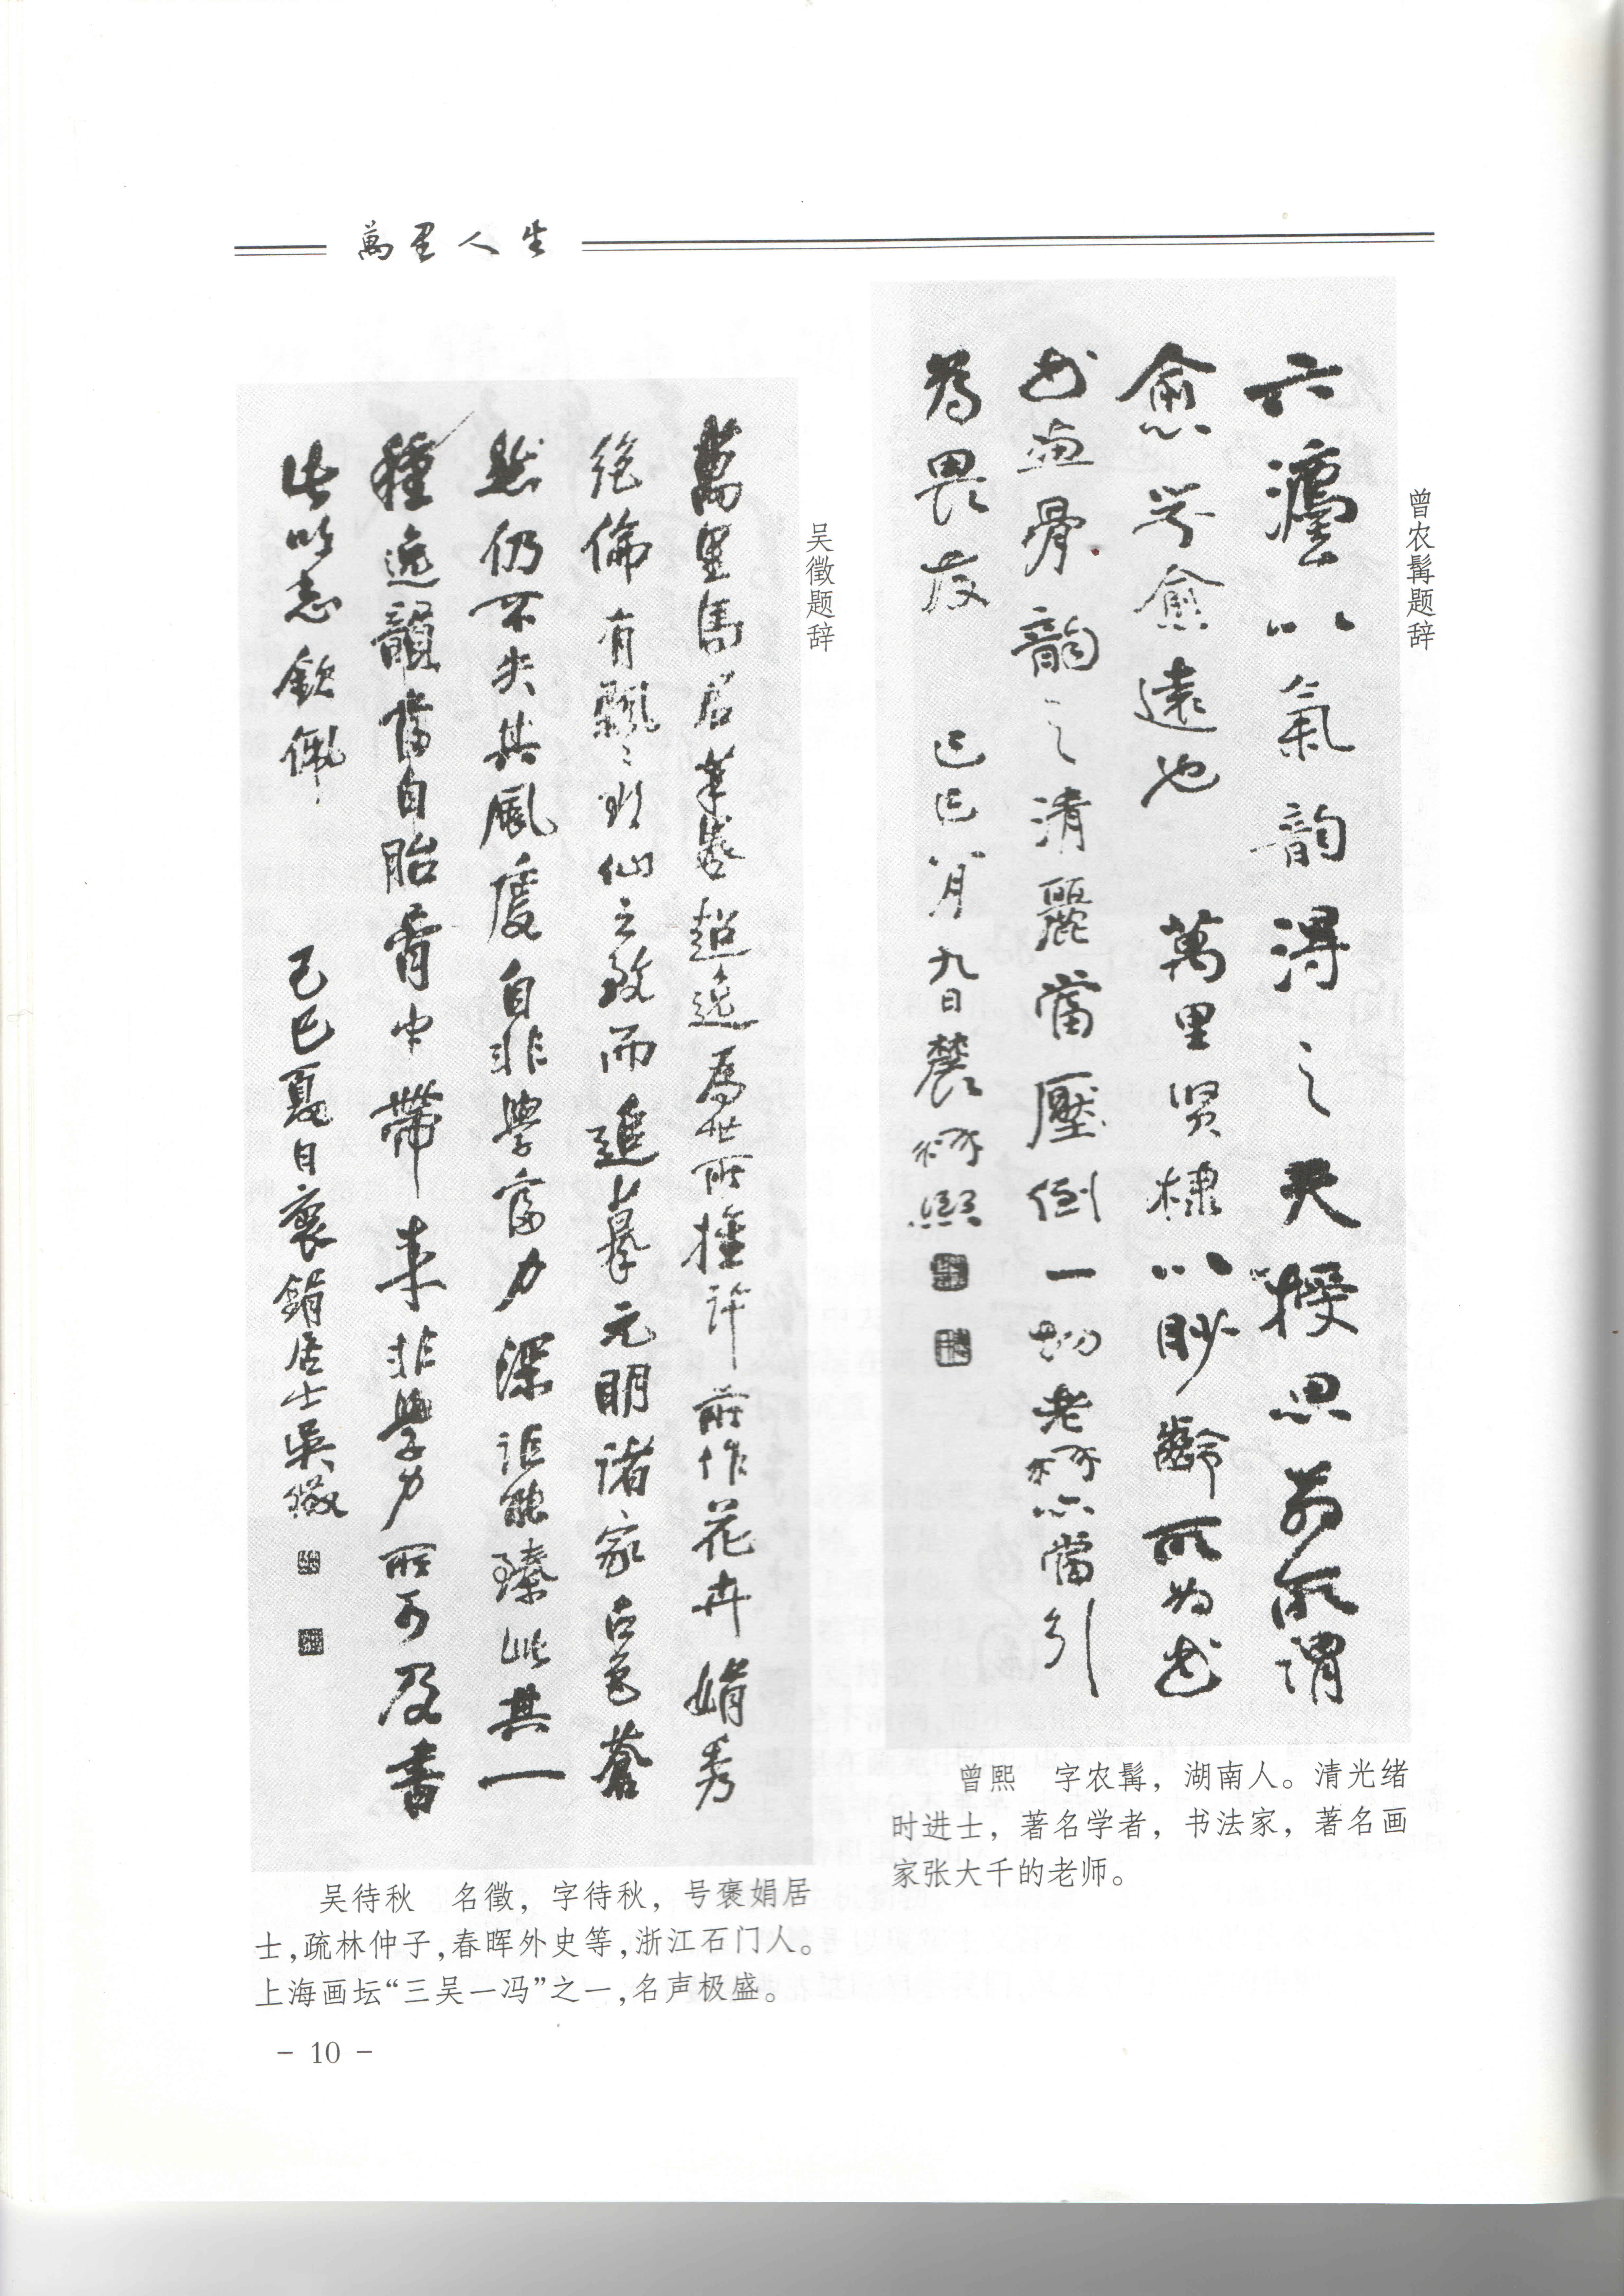 萬里人生
曾农髯题辞
六瀛以氣韵得之天授思前所謂
愈學愈遠也 萬里贤棣以眇齡所為書
書畫骨韻之清麗當壓倒一切老髯亦當引
為畏友 己巳八月九日農髯熙
曾熙 字农髯，湖南人。清光绪
时进士，著名学者，书法家，著名画
家张大千的老师。
吴徵题辞
萬里馬君筆墨超逸為世所推許前作花卉娟秀
絕倫有飄飄欲仙之致而追摹元明諸家古色蒼
然仍不失其風度自非學富力深詎能臻此其一
種逸韻當自胎胥中帶來非學力所可及書
此以志欽佩 己巳夏日褱鋗居士吳徵
吴待秋 名徵，字待秋，号褒娟居
士，疏林仲子，春晖外史等，浙江石门人。
上海画坛“三吴一冯”之一，名声极盛。
- 10 -